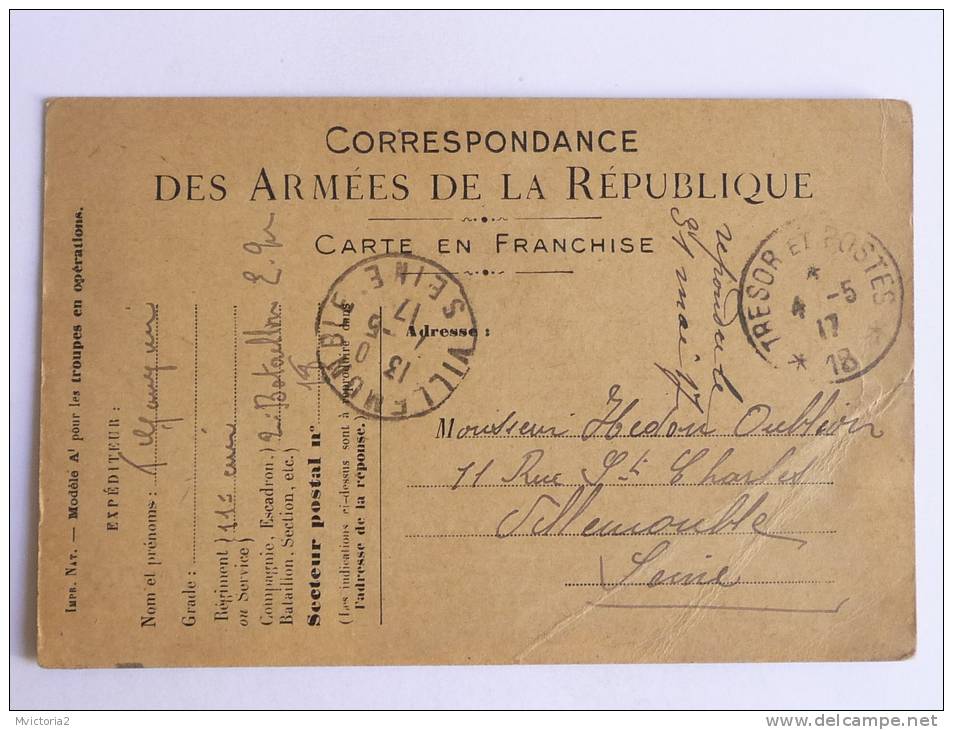 CORRESPONDANCE
DES ARMÉES DE LA RÉPUBLIQUE
CARTE EN FRANCHISE
répondu le
mai 17
TRESOR ET POSTES
* 4 -5
17
* 18 *
VILLEMOMBLE
SEINE
13 50
1 -5
17
Adresse :
Monsieur Hedon
11 Rue St Charles
Villemomble
Seine
IMPR. NAT. — Modèle A¹ pour les troupes en opérations.
EXPÉDITEUR :
Nom et prénoms :
Grade :
Régiment } 113
ou Service }
Compagnie, Escadron. }
Bataillon, Section, etc. } Bataillon
Secteur postal n°
(Les indications ci-dessus sont à reproduire dans
l'adresse de la réponse.)
Mvictoria2
delcampe.net